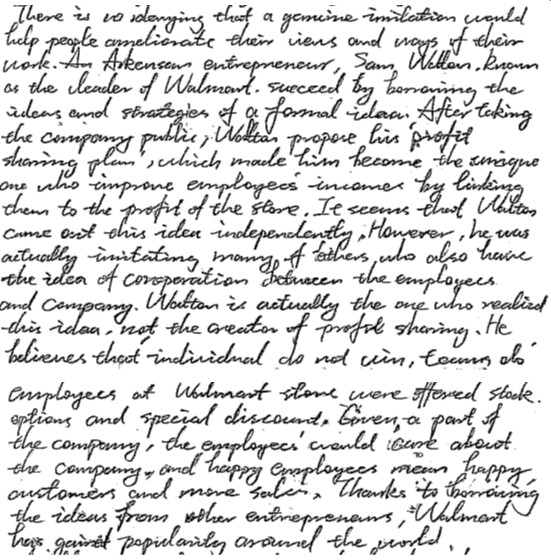 There is no denying that a genuine imitation would
help people ameliorate their views and ways of their
work. An Arkensan entrepreneur, Sam Walton, known
as the leader of Walmart. succeed by borrowing the
ideas and strategies of a formal idea. After taking
the company public, Walton propose his profit
sharing plan, which made him become the unique
one who improve employees' incomes by linking
them to the profit of the store. It seems that Walton
came out this idea independently. However, he was
actually imitating many of others who also have
the idea of cooperation between the employees
and company. Walton is actually the one who realized
this idea, not the creator of profit sharing. He
believes that individual do not win, teams do
employees at Walmart store were offered stock
options and special discount. Given a part of
the company, the employees would care about
the company, and happy employees mean happy
customers and more sales. Thanks to borrowing
the ideas from other entrepreneurs, Walmart
has gained popularity around the world.